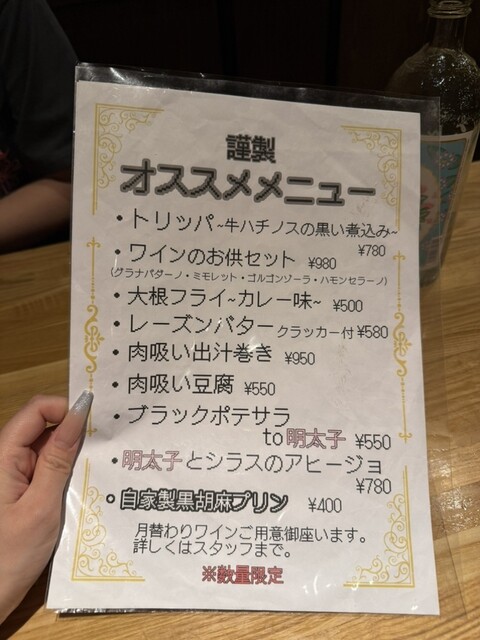 謹製
オススメメニュー
・トリッパ~牛ハチノスの黒い煮込み~
¥780
・ワインのお供セット ¥980
(グラナパダーノ・ミモレット・ゴルゴンゾーラ・ハモンセラーノ)
・大根フライ~カレー味~ ¥500
・レーズンバター クラッカー付 ¥580
・肉吸い出汁巻き ¥950
・肉吸い豆腐 ¥550
・ブラックポテサラ
to明太子 ¥550
・明太子とシラスのアヒージョ
¥780
・自家製黒胡麻プリン ¥400
月替わりワインご用意御座います。
詳しくはスタッフまで。
※数量限定